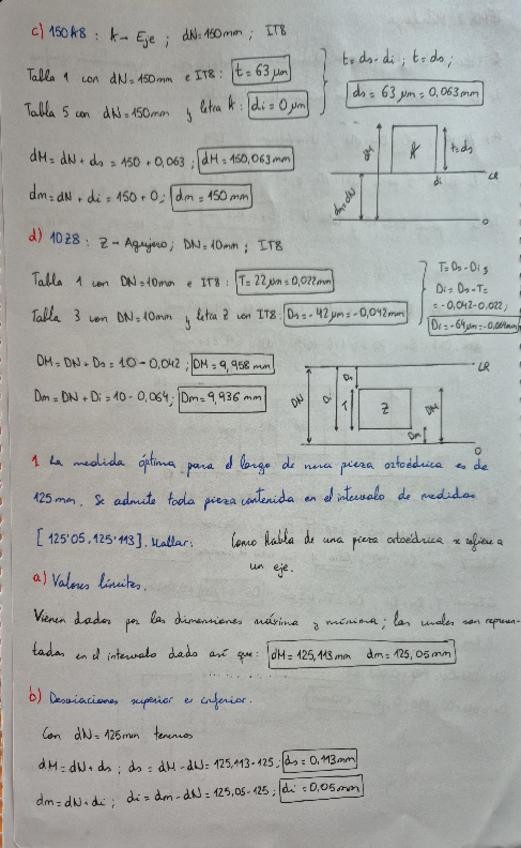 c) 150k8 : k → Eje ; dN=150mm ; IT8
Tabla 1 con dN=150mm e IT8 : t=63 µm
Tabla 5 con dN=150mm y letra k : di=0 µm
t=ds-di ; t=ds ;
ds = 63 µm = 0,063mm
dM = dN+ds = 150+0,063 ; dM=150,063mm
dm = dN+di = 150+0 ; dm=150mm
dM
k
t=ds
di
LR
dm=dN
0
d) 10Z8 : Z → Agujero ; DN=10mm ; IT8
Tabla 1 con DN=10mm e IT8 : T=22µm=0,022mm
Tabla 3 con DN=10mm y letra Z con IT8 : Ds=-42µm=-0,042mm
T=Ds-Di ;
Di=Ds-T=
=-0,042-0,022 ;
Di=-64µm=-0,064mm
DM=DN+Ds=10-0,042 ; DM=9,958mm
Dm=DN+Di=10-0,064 ; Dm=9,936mm
LR
DN
Di
Ds
T
Z
DM
Dm
0
1 La medida óptima para el largo de una pieza ortoédrica es de
125mm. Se admite toda pieza contenida en el intervalo de medidas
[125'05, 125'113]. Hallar:
Como habla de una pieza ortoédrica se refiere a
un eje.
a) Valores límites.
Vienen dados por las dimensiones máxima y mínima ; las cuales son represen-
tadas en el intervalo dado así que : dM=125,113mm dm=125,05mm
b) Desviaciones superior e inferior.
Con dN=125mm tenemos
dM=dN+ds ; ds=dM-dN=125,113-125 ; ds=0,113mm
dm=dN+di ; di=dm-dN=125,05-125 ; di=0,05mm